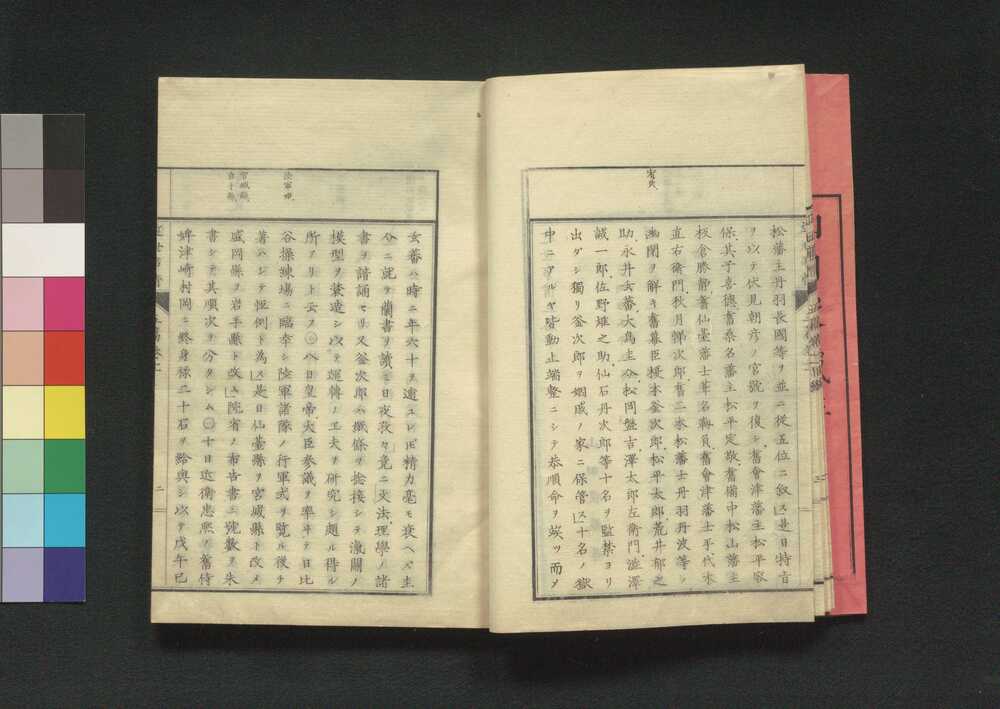 宥免
松藩主丹羽長國等ヲ並ニ從五位ニ敘」ス是日特旨
ヲ以テ伏見朝彦ノ宮號ヲ復シ舊會津藩主松平容
保其子喜德舊桑名藩主松平定敬舊備中松山藩主
板倉勝靜舊仙臺藩士葦名靱負舊會津藩士手代木
直右衛門秋月悌次郎舊二本松藩士丹羽丹波等ノ
幽閉ヲ解キ舊幕臣榎本釜次郎松平太郎荒井郁之
助永井玄蕃大鳥圭介松岡盤吉澤太郎左衛門澁澤
誠一郎佐野雄之助仙石丹次郎等十名ヲ監禁ヨリ
出ダシ獨リ釜次郎ヲ姻戚ノ家ニ保管」ス十名ノ獄
中ニアルヤ皆動止端整ニシテ恭順命ヲ竢ツ而メ
陸軍部
宮城縣
岩手縣
玄蕃ハ時ニ年六十ヲ遠ユレ𪜈精力毫モ衰ヘズ圭
介ニ就テ蘭書ヲ讀ミ日夜孜々竟ニ文法理學ノ諸
書ヲ諳誦セリ又釜次郎ハ鐵條ヲ捻接シテ激關ノ
模型ヲ製造シ以テ運轉ノ工夫ヲ研究シ頗ル得ル
所アリト云フ〇八日皇帝大臣參議ヲ率ヰテ日比
谷操練場ニ臨幸シ陸軍諸隊ノ行軍式ヲ覽ル後チ
著ハシテ恒例ト為」ス是日仙臺縣ヲ宮城縣ト改メ
盛岡縣ヲ岩手縣ト改ム」院省ノ布告書ニ號數ヲ朱
書シテ其順次ヲ分タシム〇十日近衛忠熙ノ舊侍
婢津崎村岡ニ終身祿二十石ヲ給與シ以テ戊午已
二